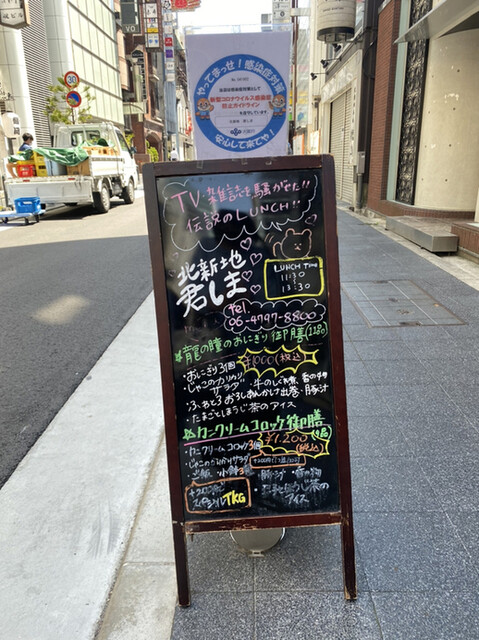 やってまっせ！感染症対策
新型コロナウイルス感染症
防止ガイドライン
安心して来てや！
30
TV 雑誌を騒がせた!!
伝説のLUNCH!!
北新地
君しま
LUNCH Time
11:30
13:30
Tel.
06-4797-8800
龍の瞳のおにぎり御膳
¥1000(税込)
・おにぎり3個
・じゃこのカリカリ
サラダ
・牛のしぐれ煮
・ふわとろおろしあんかけ出巻
・豚汁
・たまごとほうじ茶のアイス
カニクリームコロッケ御膳
¥1.200
(税込)
・カニクリームコロッケ3個
・じゃこのカリカリサラダ
・ご飯
・小鉢3種
・豚汁
・香の物
スペシャルTKG
アイス